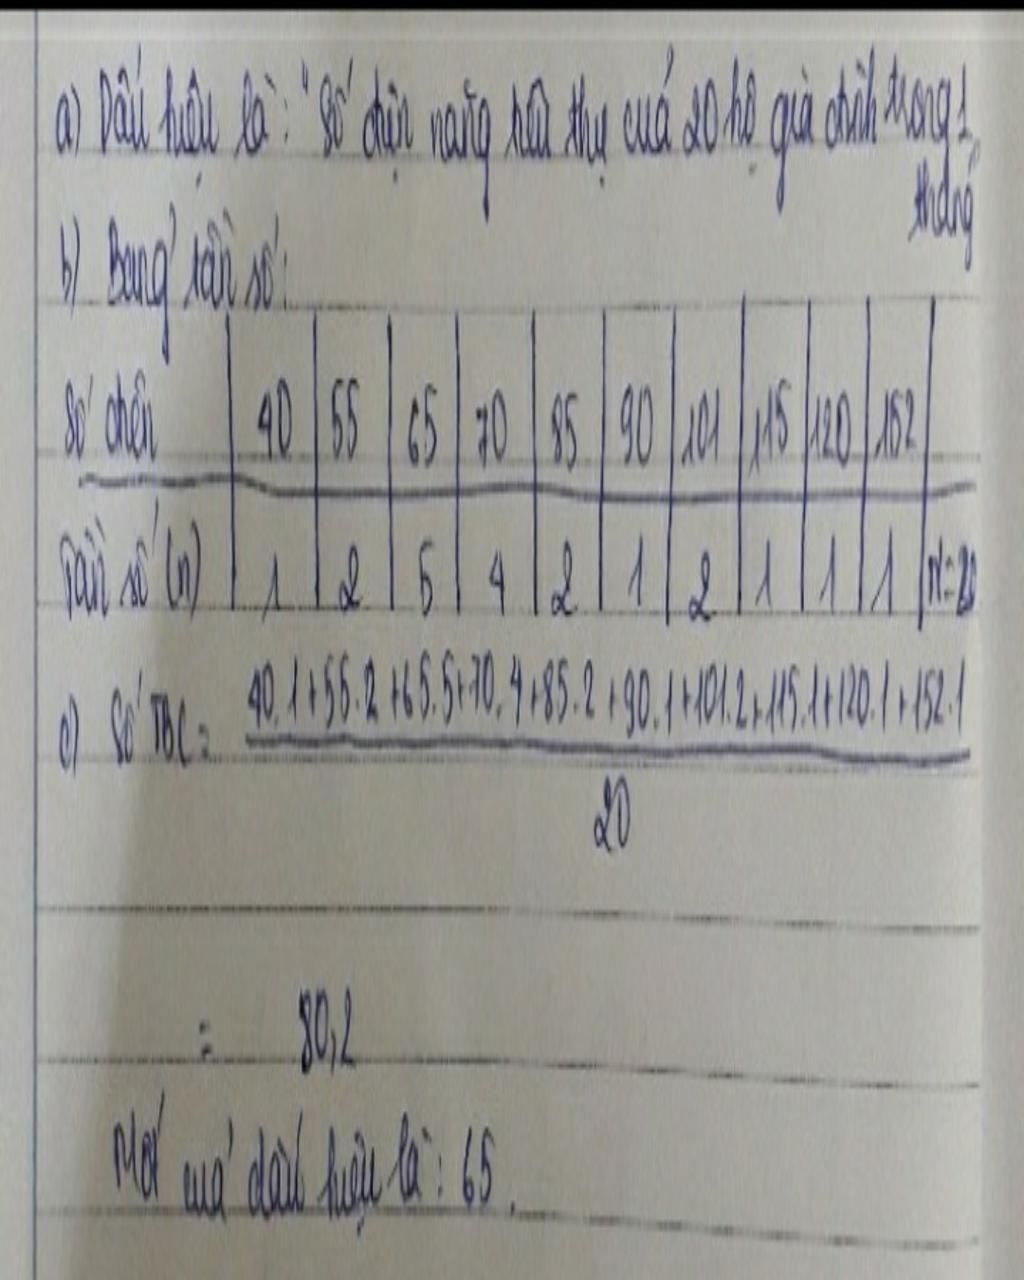 a) Dấu hiệu là: "Số điện năng tiêu thụ của 20 hộ gia đình trong 1
tháng
b) Bảng tần số:
Số điện 40 55 65 70 85 90 101 115 120 152
Tần số (n) 1 2 5 4 2 1 2 1 1 1 N=20
c) Số TBC = 40.1+55.2+65.5+70.4+85.2+90.1+101.2+115.1+120.1+152.1
20
= 80,2
Mốt của dấu hiệu là: 65.